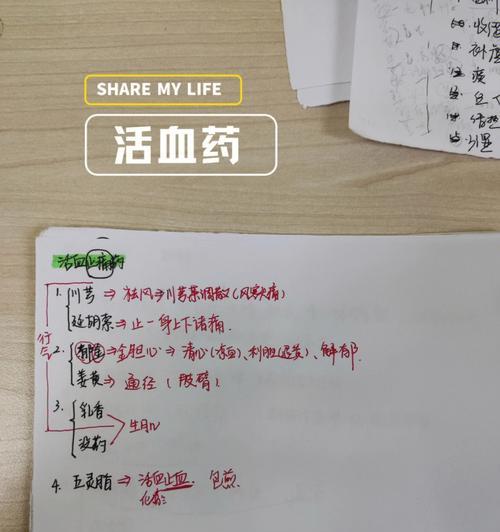 SHARE MY LIFE
活血药
收涩
补虚
痰
活血止痛药
行气
1. 川芎 ⇒ 祛风 ⇒ 川芎茶调散(风寒头痛)
延胡索 ⇒ 止一身上下诸痛.
2. 郁金 ⇒ 金胆心 ⇒ 清心(凉血)、利胆(退黄)、解郁.
姜黄 ⇒ 通经 (肢臂)
3. 乳香
没药
生肌
4. 五灵脂 ⇒ 活血止血 包煎
化瘀